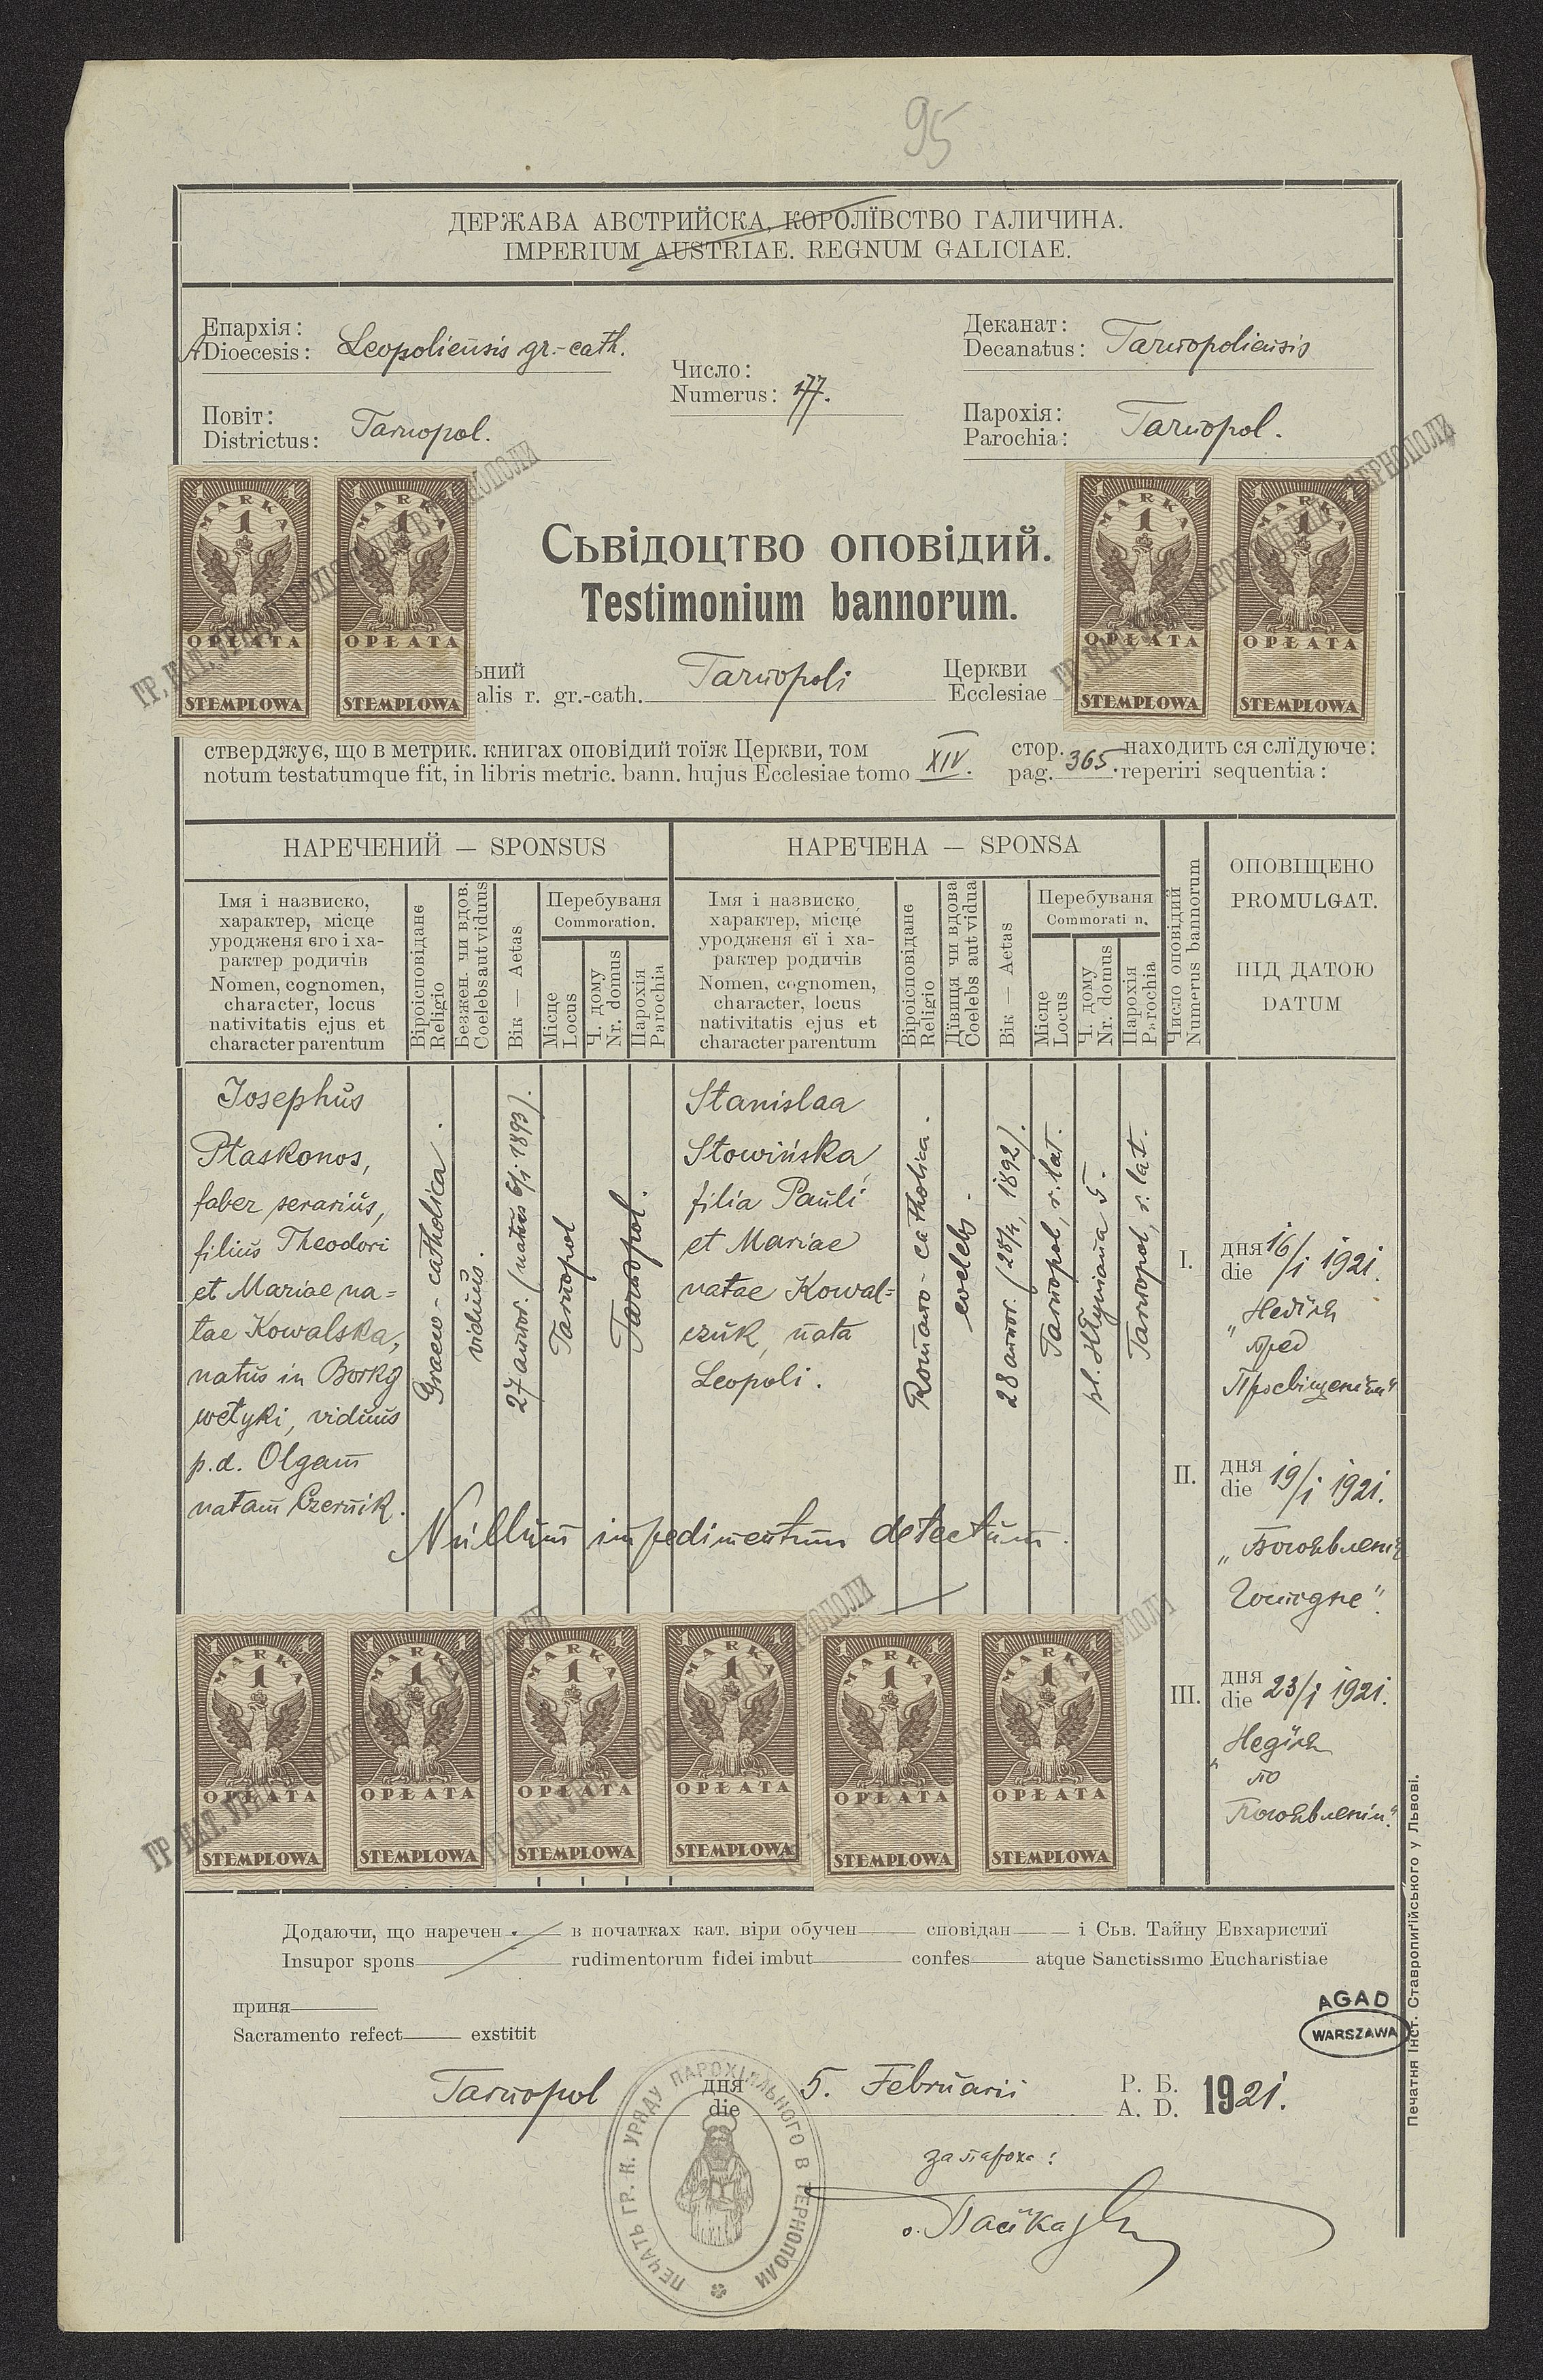 95
ДЕРЖАВА АВСТРИЙСКА, КОРОЛЇВСТВО ГАЛИЧИНА.
IMPERIUM AUSTRIAE. REGNUM GALICIAE.
Епархія:
ADioecesis: Leopoliensis gr.-cath.
Число:
Numerus: 177.
Деканат:
Decanatus: Tarnopoliensis
Повіт:
Districtus: Tarnopol.
Парохія:
Parochia: Tarnopol.
1 1 MARKA 1 OPŁATA STEMPLOWA
1 1 MARKA 1 OPŁATA STEMPLOWA
1 1 MARKA 1 OPŁATA STEMPLOWA
1 1 MARKA 1 OPŁATA STEMPLOWA
Сьвідоцтво оповідий.
Testimonium bannorum.
ьний Церкви
alis r. gr.-cath. Tarnopoli Ecclesiae
стверджує, що в метрик. книгах оповідий тоїж Церкви, том стор. находить ся слїдуюче:
notum testatumque fit, in libris metric. bann. hujus Ecclesiae tomo XIV. pag. 365. reperiri sequentia:
НАРЕЧЕНИЙ — SPONSUS
НАРЕЧЕНА — SPONSA
Імя і назвиско,
характер, місце
уродженя єго і ха-
рактер родичів
Nomen, cognomen,
character, locus
nativitatis ejus et
character parentum
Віроісповіданє
Religio
Безжен. чи вдов.
Coelebs aut viduus
Вік — Aetas
Перебуваня
Commoration.
Місце
Locus
Ч. дому
Nr. domus
Парохія
Parochia
Імя і назвиско,
характер, місце
уродженя єї і ха-
рактер родичів
Nomen, cognomen,
character, locus
nativitatis ejus et
character parentum
Віроісповіданє
Religio
Дївиця чи вдова
Coelebs aut vidua
Вік — Aetas
Перебуваня
Commorati n.
Місце
Locus
Ч. дому
Nr. domus
Парохія
Parochia
Число оповідий
Numerus bannorum
ОПОВІЩЕНО
PROMULGAT.
ПІД ДАТОЮ
DATUM
Josephus
Ptaskonos,
faber serarius,
filius Theodori
et Mariae na=
tae Kowalska,
natus in Borky
wełyki, viduus
p.d. Olgam
natam Czernik.
Graeco-catholica.
viduus.
27 annor. (natus 6/i 1893).
Tarnopol
Tarnopol.
Stanislaa
Słowińska,
filia Pauli
et Mariae
natae Kowal=
czuk, nata
Leopoli.
Romano-catholica.
coelebs.
28 annor. (28/4, 1892).
Tarnopol, r. lat.
5.
Tarnopol, r. lat.
Nullum impedimentum detectum.
I. дня
die 16/i 1921.
„Недїля
пред
Просвіщенієм"
II. дня
die 19/i 1921.
„Богоявленіє
Господне".
III. дня
die 23/i 1921.
„Недїля
по
Богоявленіи."
1 1 MARKA 1 OPŁATA STEMPLOWA
1 1 MARKA 1 OPŁATA STEMPLOWA
1 1 MARKA 1 OPŁATA STEMPLOWA
1 1 MARKA 1 OPŁATA STEMPLOWA
1 1 MARKA 1 OPŁATA STEMPLOWA
1 1 MARKA 1 OPŁATA STEMPLOWA
Додаючи, що наречен в початках кат. віри обучен сповідан і Сьв. Тайну Евхаристиї
Insupor spons rudimentorum fidei imbut confes atque Sanctissimo Eucharistiae
приня
Sacramento refect exstitit
AGAD
WARSZAWA
Tarnopol дня
die 5. Februarii Р. Б.
A. D. 1921.
ПЕЧАТЬ ГР. К. УРЯДУ ПАРОХІЯЛЬНОГО В ТЕРНОПОЛИ
за пароха:
Печатня Інст. Ставропигійського у Львові.